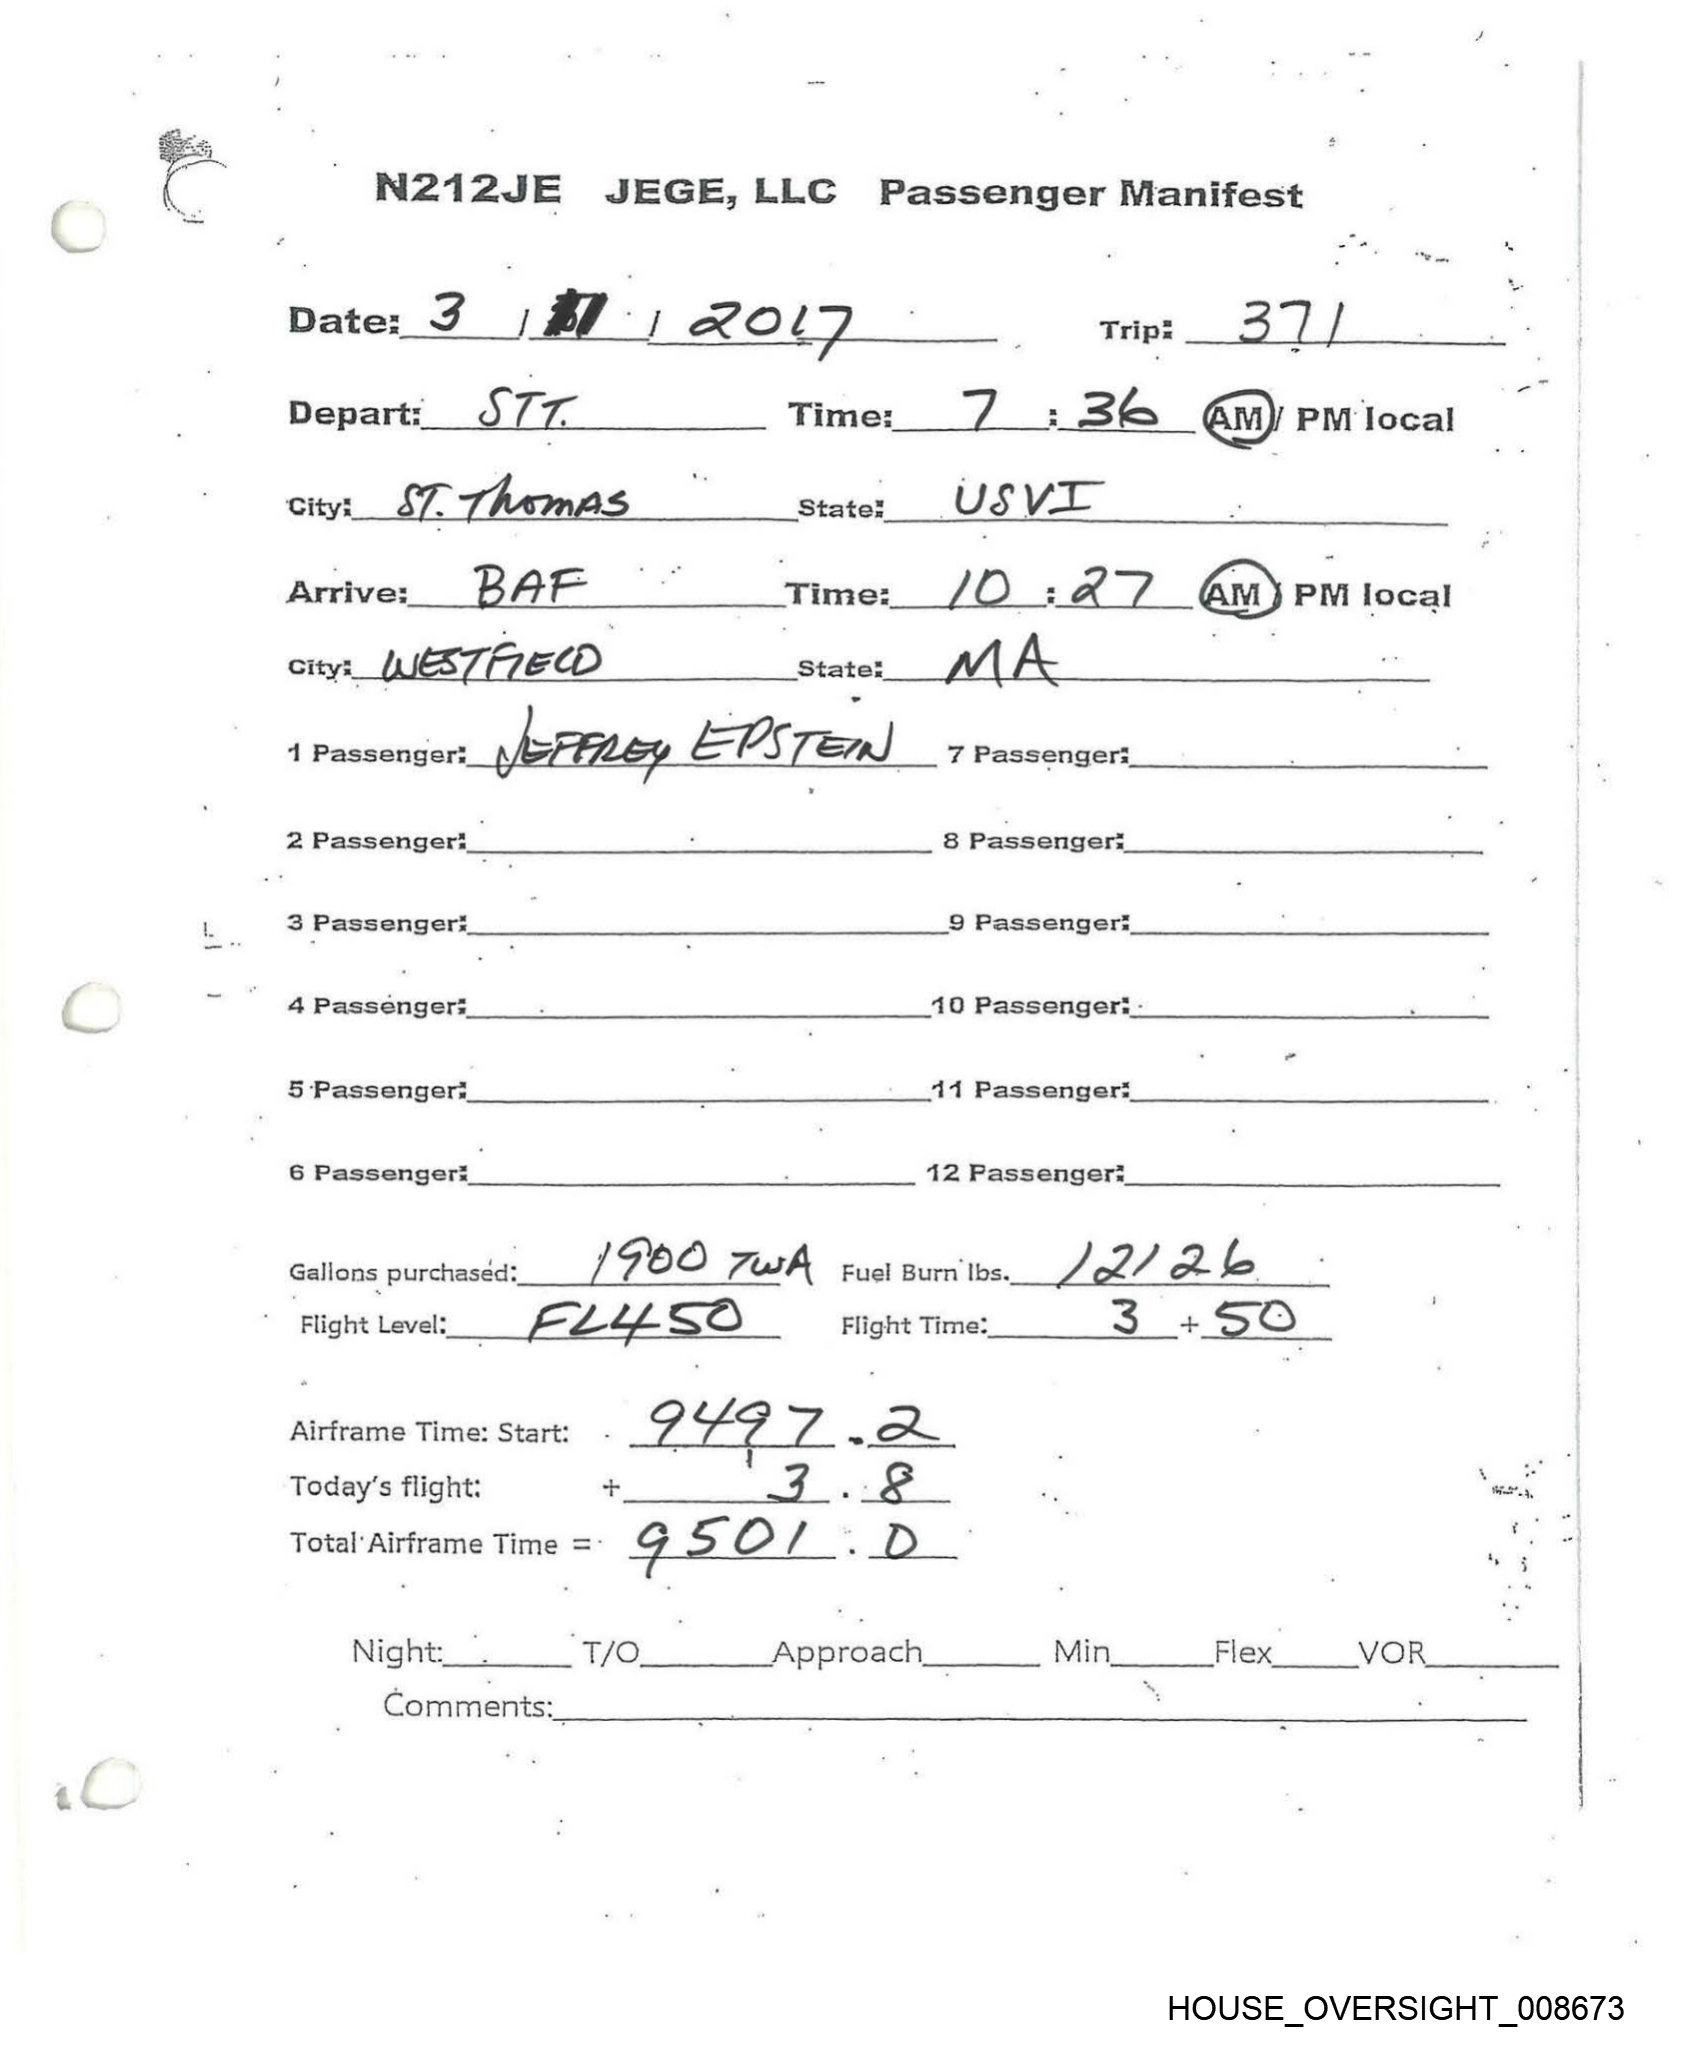 N212JE JEGE, LLC Passenger Manifest
Date: 3 / / 2017 Trip: 371
Depart: STT. Time: 7 : 36 AM / PM local
City: ST. THOMAS State: USVI
Arrive: BAF Time: 10 : 27 AM / PM local
City: WESTFIELD State: MA
1 Passenger: JEFFREY EPSTEIN 7 Passenger:
2 Passenger: 8 Passenger:
3 Passenger: 9 Passenger:
4 Passenger: 10 Passenger:
5 Passenger: 11 Passenger:
6 Passenger: 12 Passenger:
Gallons purchased: 1900 TWA Fuel Burn lbs. 12126
Flight Level: FL450 Flight Time: 3 + 50
Airframe Time: Start: 9497 . 2
Today's flight: + 3 . 8
Total Airframe Time = 9501 . 0
Night: T/O Approach Min Flex VOR
Comments:
HOUSE_OVERSIGHT_008673